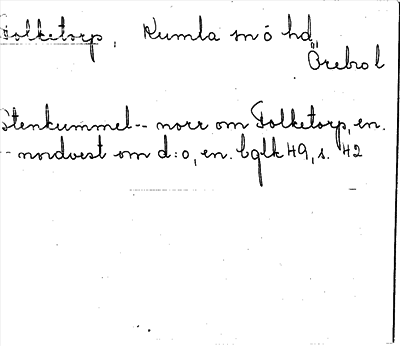 Folketorp, Kumla sn ó hd
Örebro l
Stenkummel -- norr om Folketorp, en.
-- nordvest om d:o, en. bglk 49, s. 42